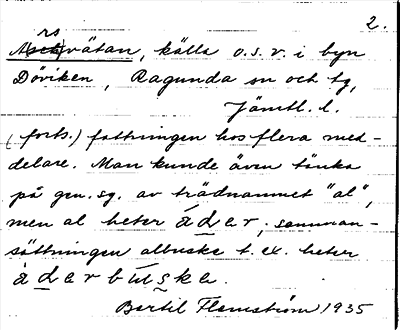 2.
rs
vätan, källa o.s.v. i byn
Döviken, Ragunda sn och tg,
Jämtl. l.
(forts.) fattningen hos flera med-
delare. Man kunde även tänka
på gen. sg. av trädnamnet "al",
men al heter ȧdər, samman-
sättningen albuske t. ex. heter
Bertil Flemström 1935